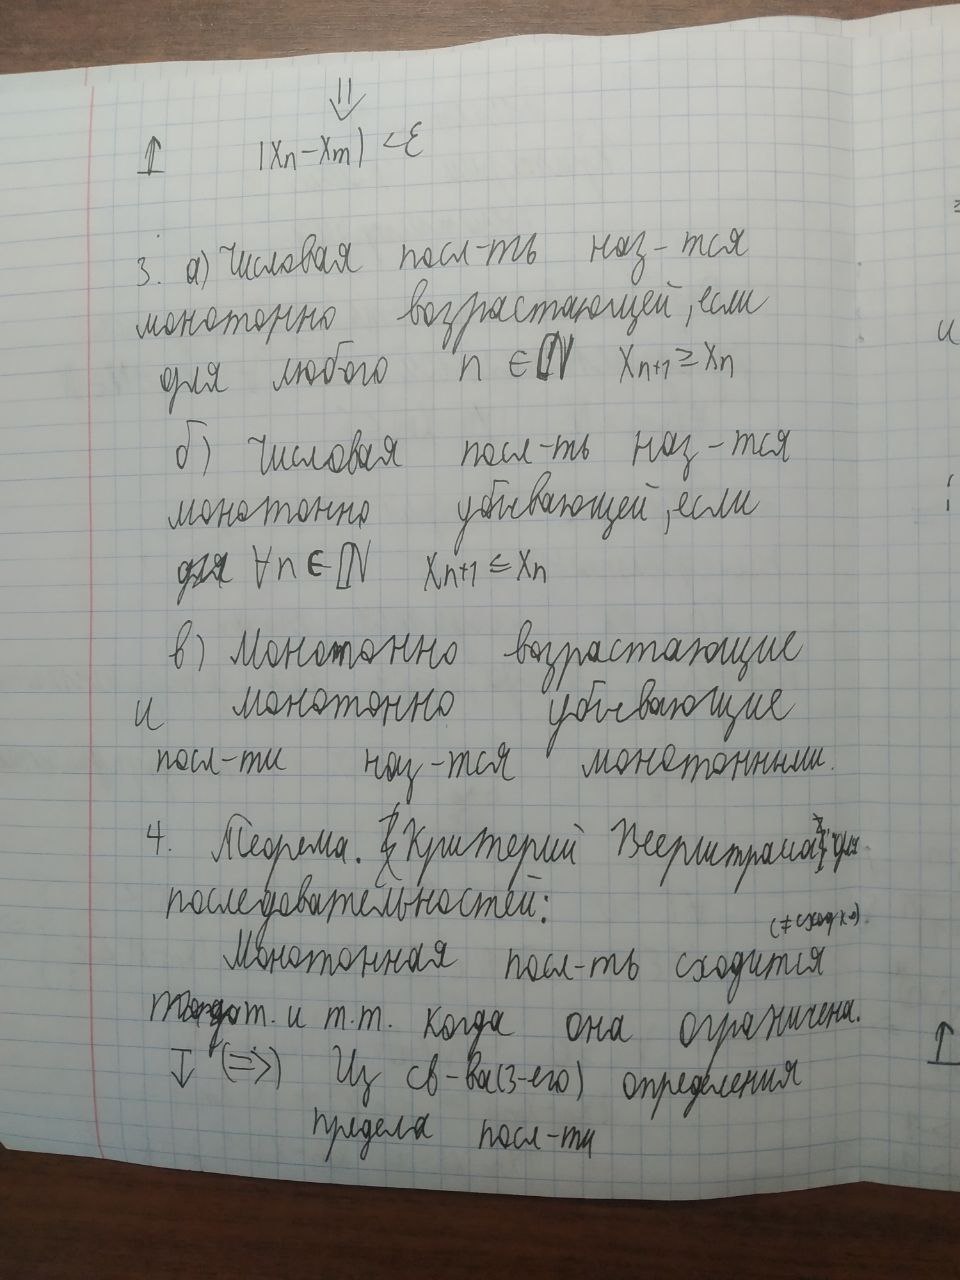 ⇓
↥ |xn - xm| < ε
3. а) Числовая посл-ть наз-тся
монотонно возрастающей, если
для любого n ∈ ℕ xn+1 ≥ xn
б) Числовая посл-ть наз-тся
монотонно убывающей, если
для ∀n ∈ ℕ xn+1 ≤ xn
в) Монотонно возрастающие
и монотонно убывающие
посл-ти наз-тся монотонными.
4. Теорема. {Критерий Веерштраса} для
последовательностей:
Монотонная посл-ть сходится
т. и т.т. когда она ограничена.
↧ (=>) Из св-ва(3-его) определения
предела посл-ти